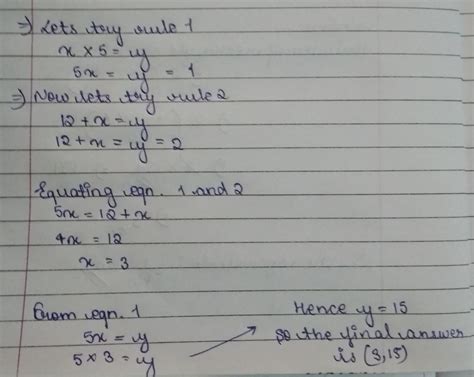 ⇒ Lets try rule 1
x × 5 = y
5x = y = 1
⇒ Now lets try rule 2
12 + x = y
12 + x = y = 2
Equating eqn. 1 and 2
5x = 12 + x
4x = 12
x = 3
From eqn. 1
5x = y
5 × 3 = y
Hence y = 15
so the final answer
is (3,15)